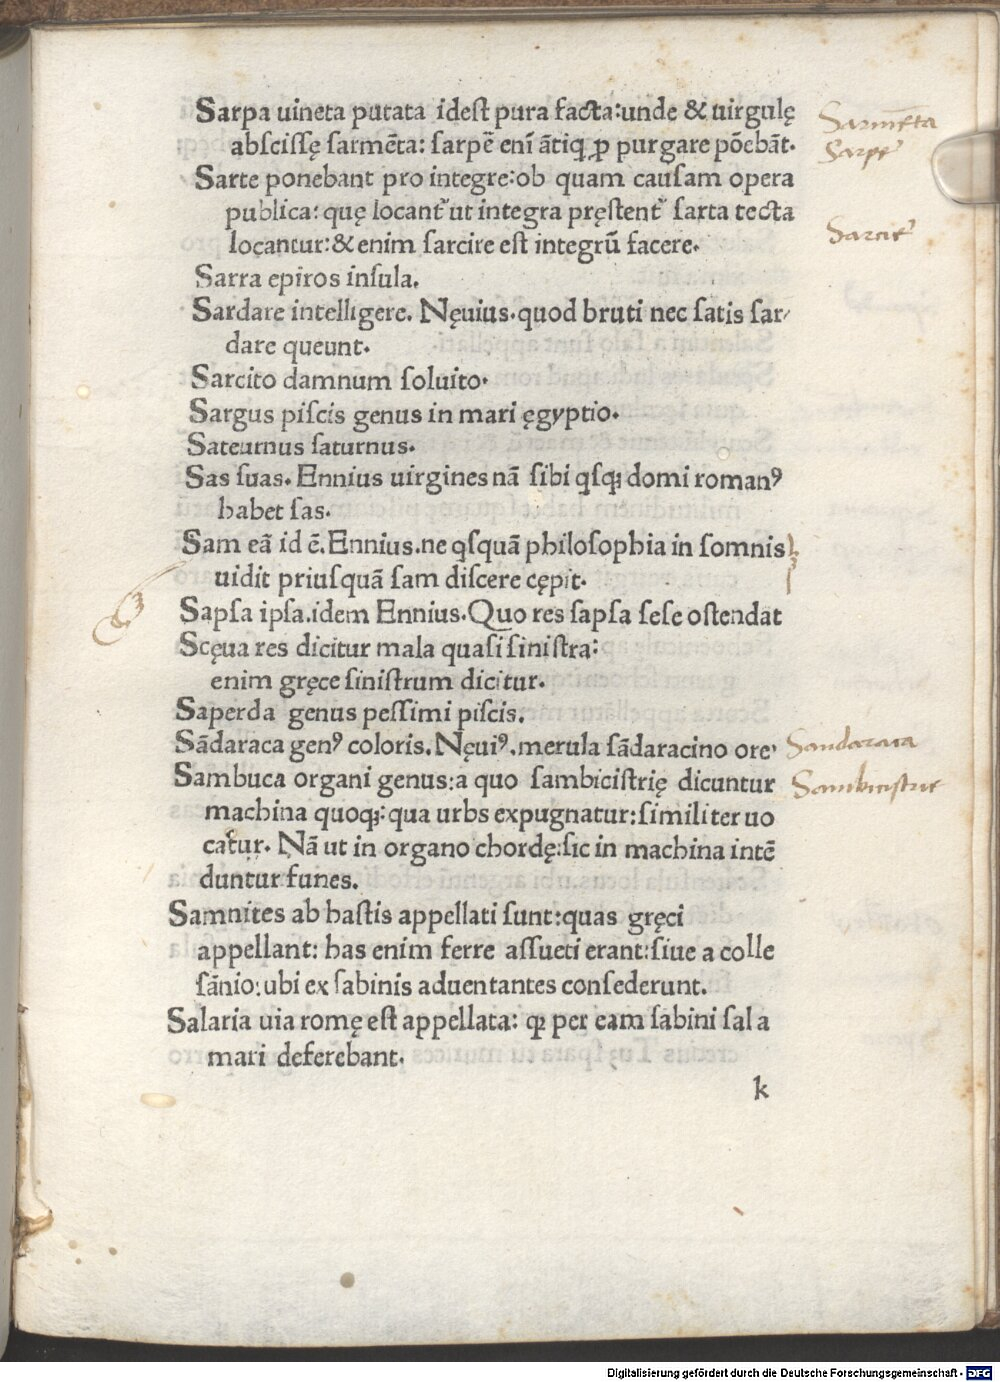 Sarpa uineta putata idest pura facta:unde & uirgulę
abscissę sarmēta: sarpē eni ātiq ꝓ purgare pōebāt.
Sarte ponebant pro integre:ob quam causam opera
publica: quę locant' ut integra pręstent' sarta tecta
locantur:& enim sarcire est integrū facere.
Sarra epiros insula.
Sardare intelligere. Nęuius.quod bruti nec satis sar/
dare queunt.
Sarcito damnum soluito.
Sargus piscis genus in mari ęgyptio.
Sateurnus saturnus.
Sas suas. Ennius uirgines nā sibi qsq; domi romanꝰ
habet sas.
Sam eā id ē. Ennius.ne qsquā philosophia in somnis
uidit priusquā sam discere cępit.
Sapsa ipsa.idem Ennius.Quo res sapsa sese ostendat
Scęua res dicitur mala quasi sinistra:
enim gręce sinistrum dicitur.
Saperda genus pessimi piscis.
Sādaraca genꝰ coloris. Nęuiꝰ.merula sādaracino ore.
Sambuca organi genus:a quo sambicistrię dicuntur
machina quoq;:qua urbs expugnatur:similiter uo
catur. Nā ut in organo chordę:sic in machina intē
duntur funes.
Samnites ab hastis appellati sunt:quas gręci
appellant: has enim ferre assueti erant:siue a colle
sānio:ubi ex sabinis aduentantes consederunt.
Salaria uia romę est appellata: ꝙ per eam sabini sal a
mari deferebant.
k
Sarmēta
Sarpe
Sarcire
Sandaraca
Sambicistrie
Digitalisierung gefördert durch die Deutsche Forschungsgemeinschaft - DFG